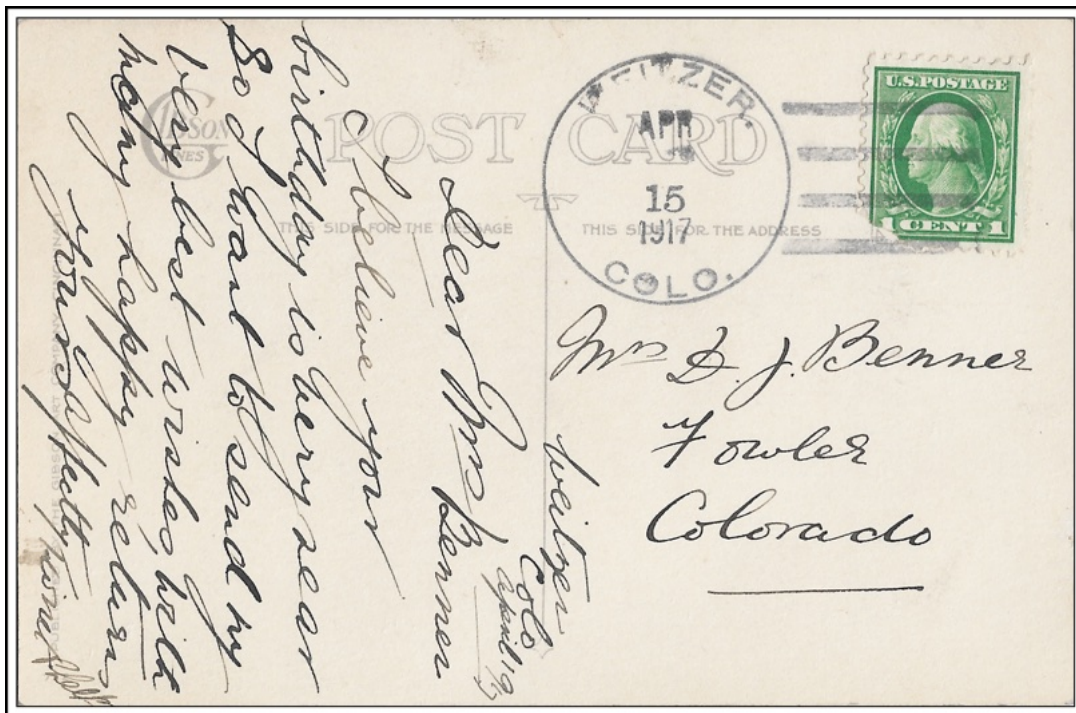 GIBSON
LINES
POST CARD
THIS SIDE FOR THE MESSAGE
THIS SIDE FOR THE ADDRESS
WEITZER.
APR
15
1917
COLO.
U.S.POSTAGE
1 CENT 1
Mrs D. J. Benner
Fowler
Colorado
Weitzer
Colo
April
Dear Mrs Benner
I believe your
birthday is very near
So I want to send my
very best wishes with
many happy returns
Yours
THE GIBSON ART COMPANY, CINCINNATI